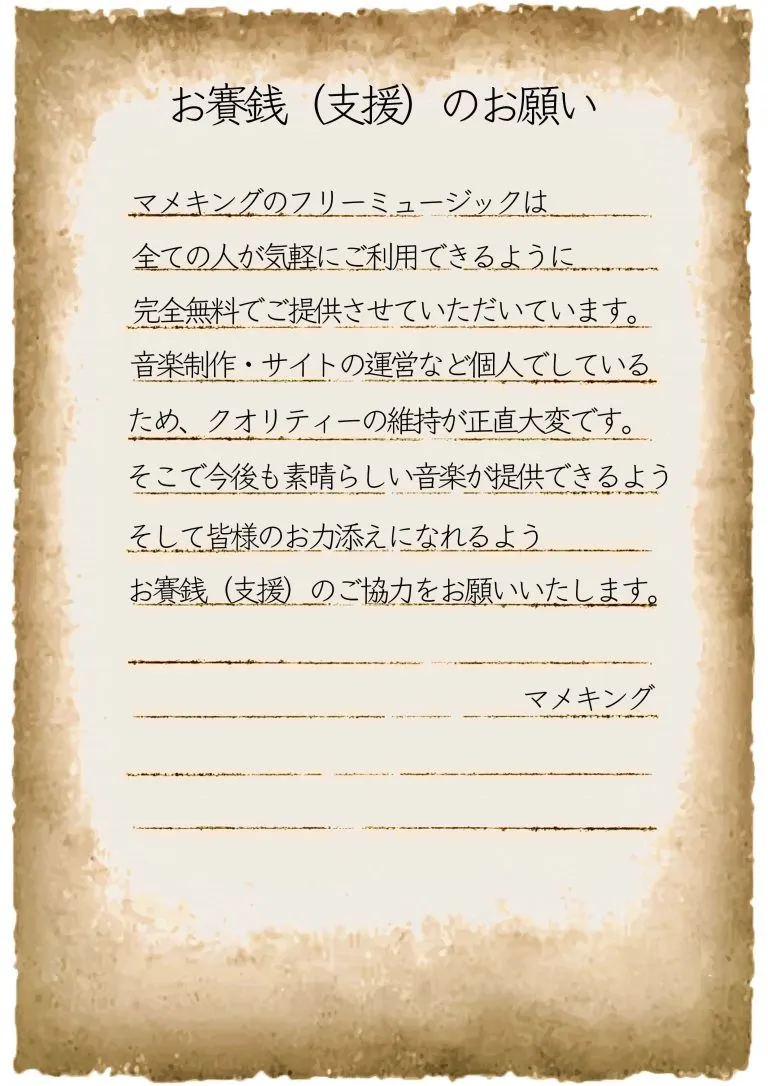 お賽銭（支援）のお願い
マメキングのフリーミュージックは
全ての人が気軽にご利用できるように
完全無料でご提供させていただいています。
音楽制作・サイトの運営など個人でしている
ため、クオリティーの維持が正直大変です。
そこで今後も素晴らしい音楽が提供できるよう
そして皆様のお力添えになれるよう
お賽銭（支援）のご協力をお願いいたします。
マメキング